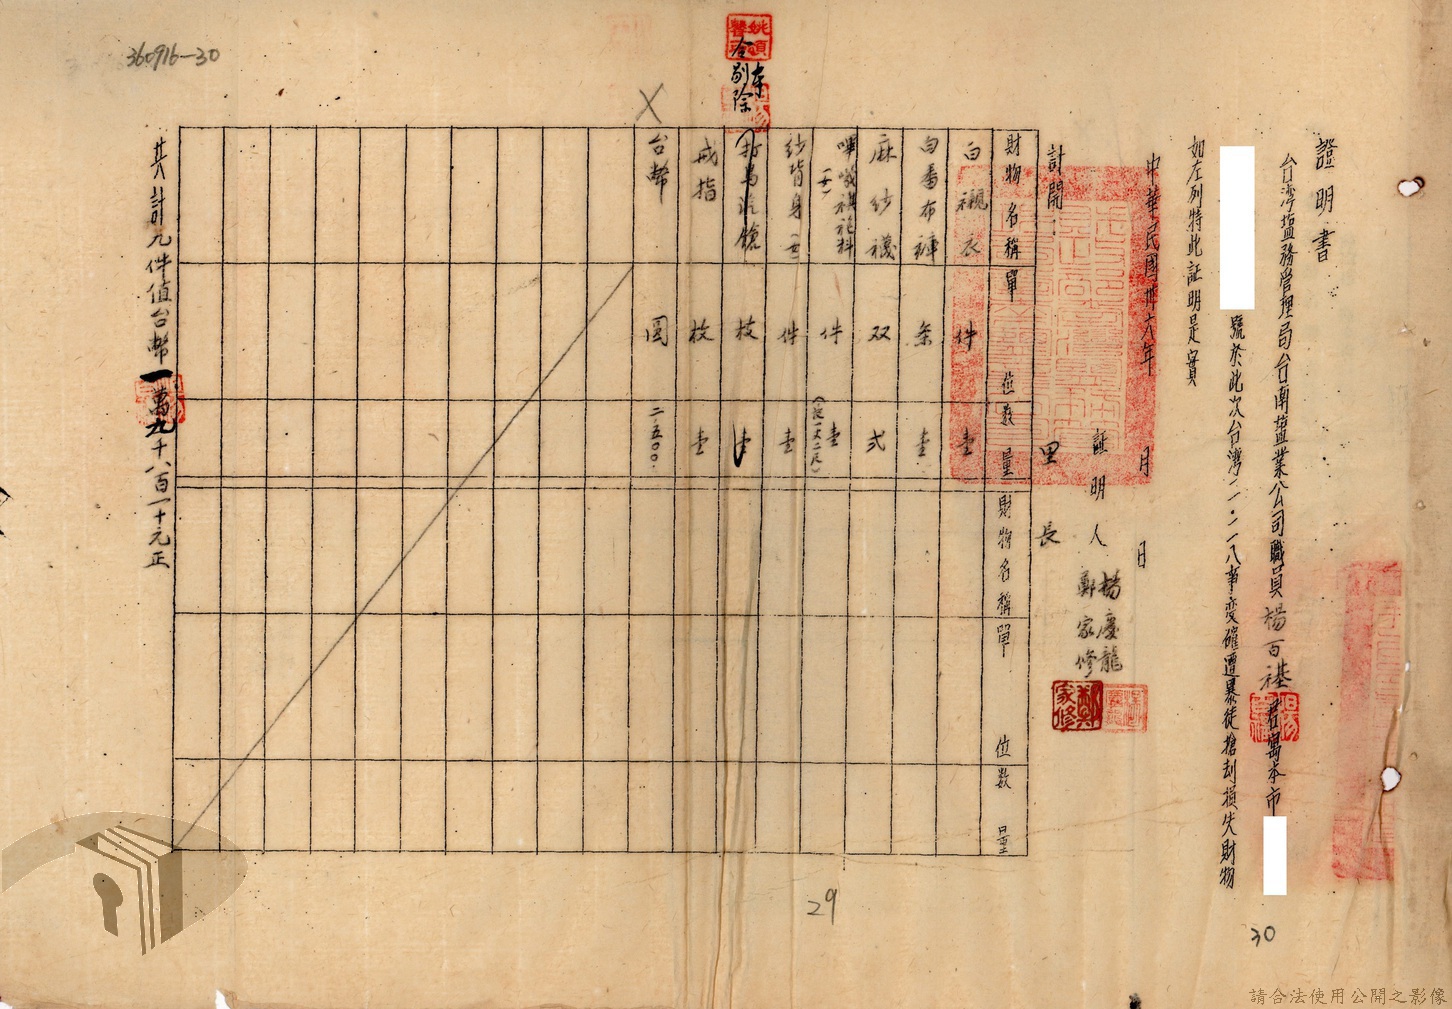 360916-30
證明書
台湾塩務管理局台南塩業公司職員楊百祺君寓本市
號於此次台湾二・二八事变確遭暴徒搶刼損失財物
如左列特此証明是實
中華民國卅六年 月 日
証明人 楊慶龍
里長 鄭家修
鄭家修
計開：
財物名稱 單位 数量 財物名稱 單位 数量
白襯衣 件 壹
白番布褲 条 壹
麻紗襪 双 弍
嗶嘰祺袍料(女) 件 壹
紗背身(女) 件 壹
枝
戒指 枚 壹
台幣 圓 二.五〇〇.
X
全剔除
共計九件值台幣一萬九千八百一十元正
29
30
請合法使用公開之影像